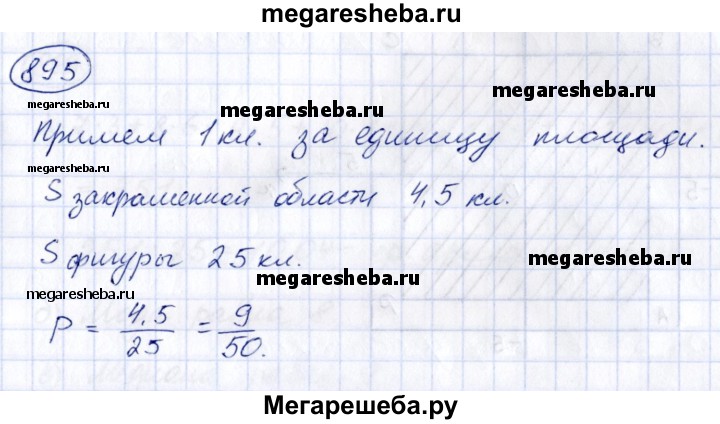 megaresheba.ru
895
megaresheba.ru
megaresheba.ru
Примем 1 кл. за единицу площади.
megaresheba.ru
S закрашенной области 4,5 кл.
megaresheba.ru
S фигуры 25 кл.
megaresheba.ru
megaresheba.ru
P = 4,5/25 = 9/50.
Мегарешеба.ру